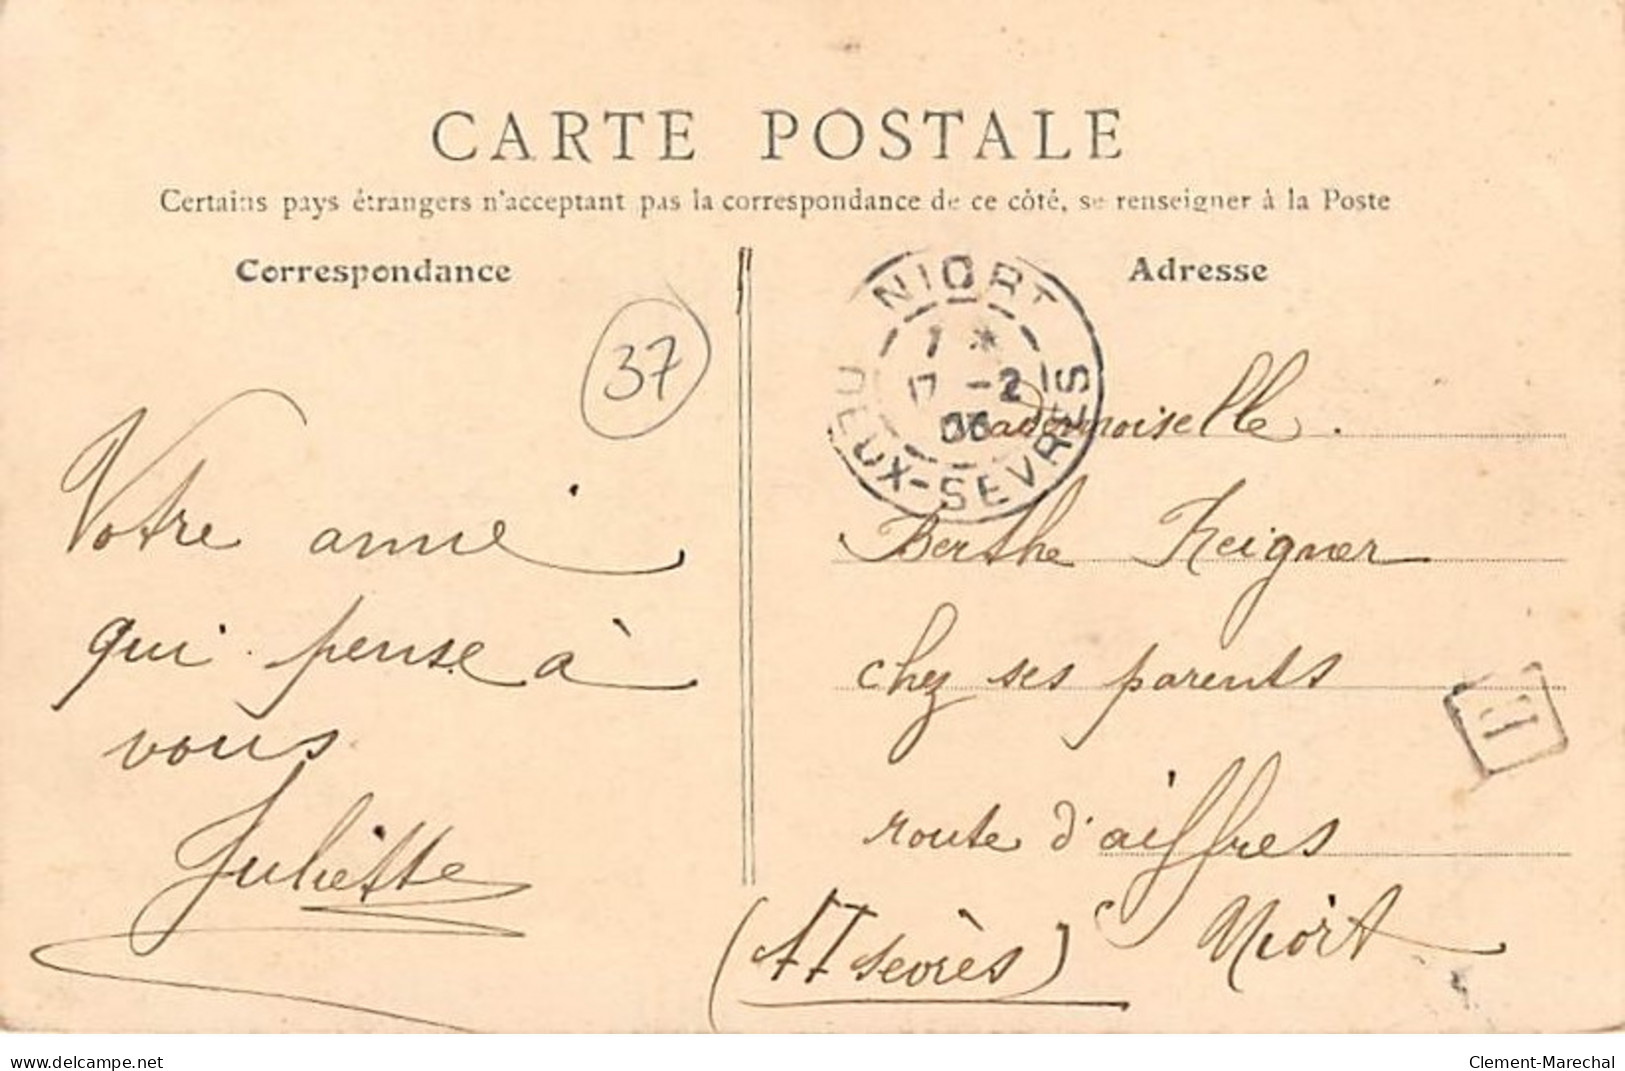 CARTE POSTALE
Certains pays étrangers n'acceptant pas la correspondance de ce côté, se renseigner à la Poste
Correspondance
37
Votre amie
qui pense à
vous
Juliette
NIORT
DEUX-SEVRES
1 *
17 -2
06
Adresse
Mademoiselle
Berthe
chez ses parents
route d'aiffres
Niort
Sèvres)
E
www.delcampe.net
Clement-Marechal